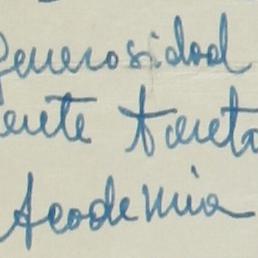 Generosidad
ente tanto
Academia